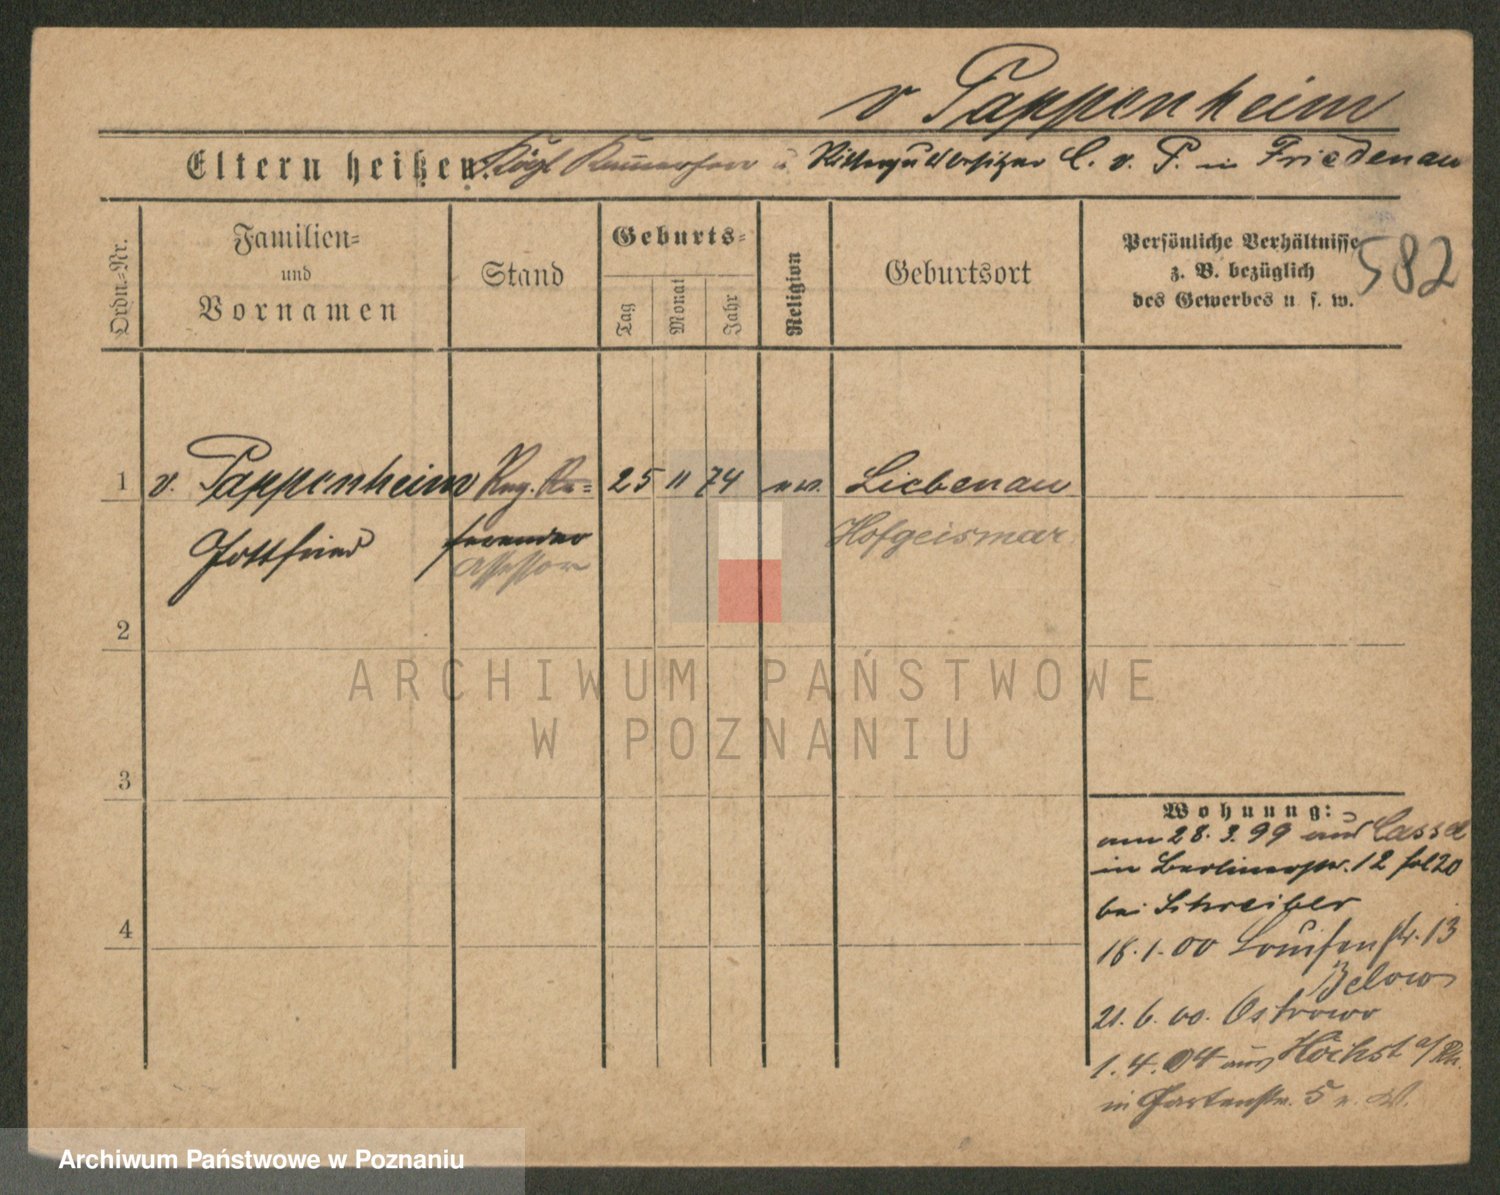 v Pappenheim
Eltern heißen: Kögl Kammerherr u Rittergutsbesitzer C. v. P. in Friedenau
582
Ordn.-Nr.
Familien-
und
Vornamen
Stand
Geburts-
Tag
Monat
Jahr
Religion
Geburtsort
Persönliche Verhältnisse
z. B. bezüglich
des Gewerbes u. s. w.
1 v. Pappenheim Reg. Re= 25 11 74 ev. Liebenau
Gottfried ferendar Hofgeismar
Assessor
2
3
4
Wohnung:
am 28. 3. 99 aus Cassel
in Berlinerstr. 12
bei Schreiber
18. 1. 00 Louisenstr. 13
Below
21. 6. 00. Ostrowo
1. 4. 04 aus Höchst a/
in Gartenstr. 5
ARCHIWUM PAŃSTWOWE
W POZNANIU
Archiwum Państwowe w Poznaniu